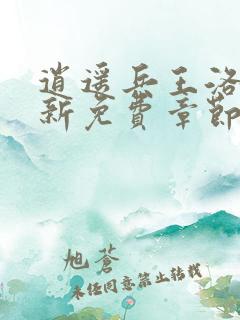 逍遥兵王洛
新免费章节
旭苍
未经同意禁止转载